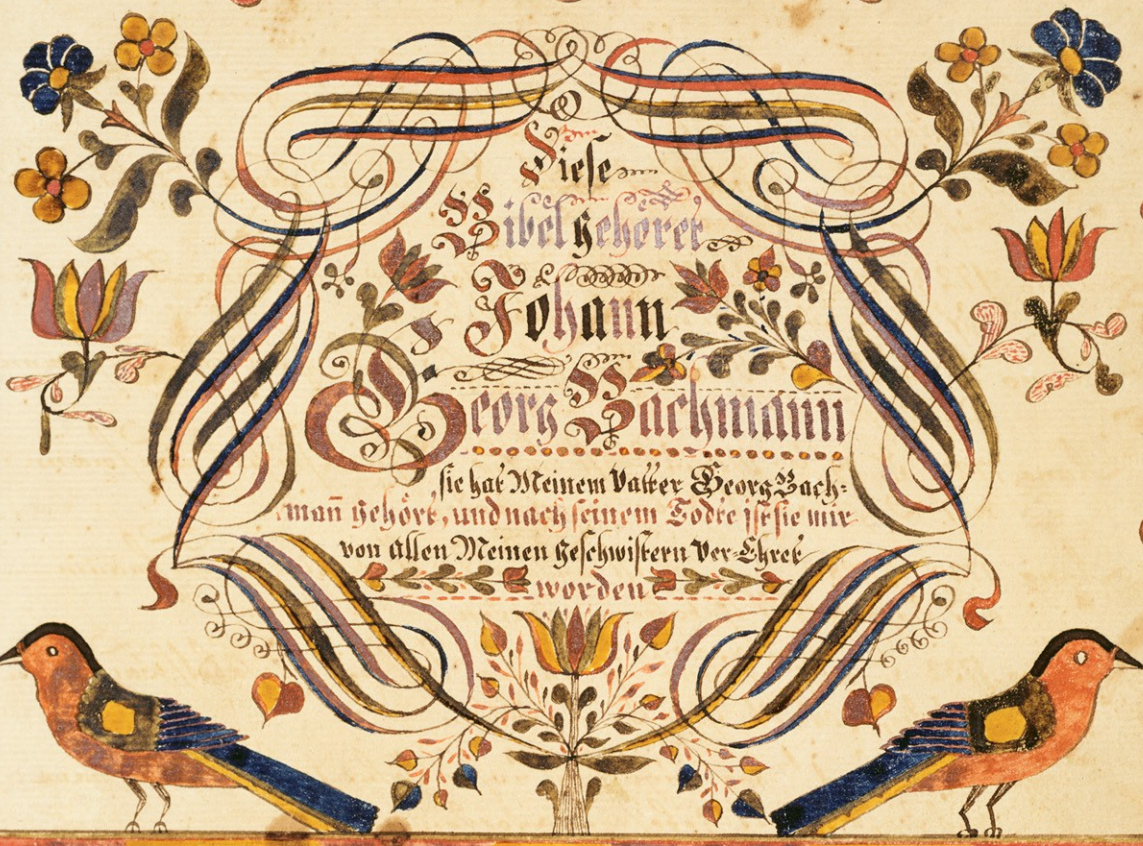 Diese
Bibel gehöret
Johann
Georg Bachmann
sie hat Meinem Vatter Georg Bach=
man̄ gehört, und nach seinem Todte ist sie mir
von Allen Meinen Geschwistern Ver=Ehret
worden